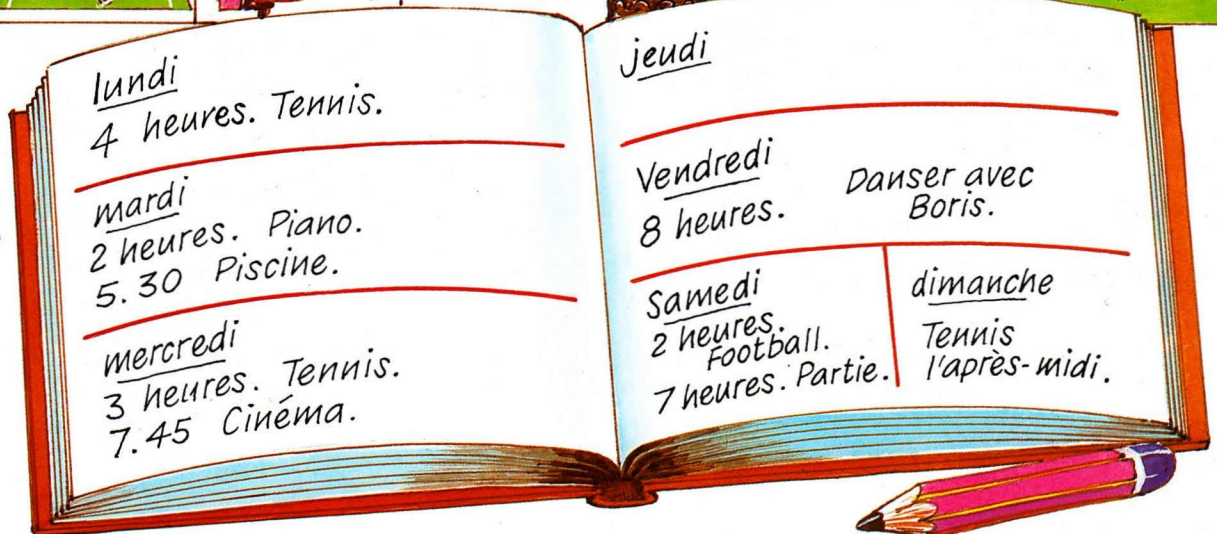 lundi
4 heures. Tennis.
mardi
2 heures. Piano.
5.30 Piscine.
mercredi
3 heures. Tennis.
7.45 Cinéma.
jeudi
Vendredi
8 heures. Danser avec
Boris.
Samedi
2 heures.
Football.
7 heures. Partie.
dimanche
Tennis
l'après-midi.